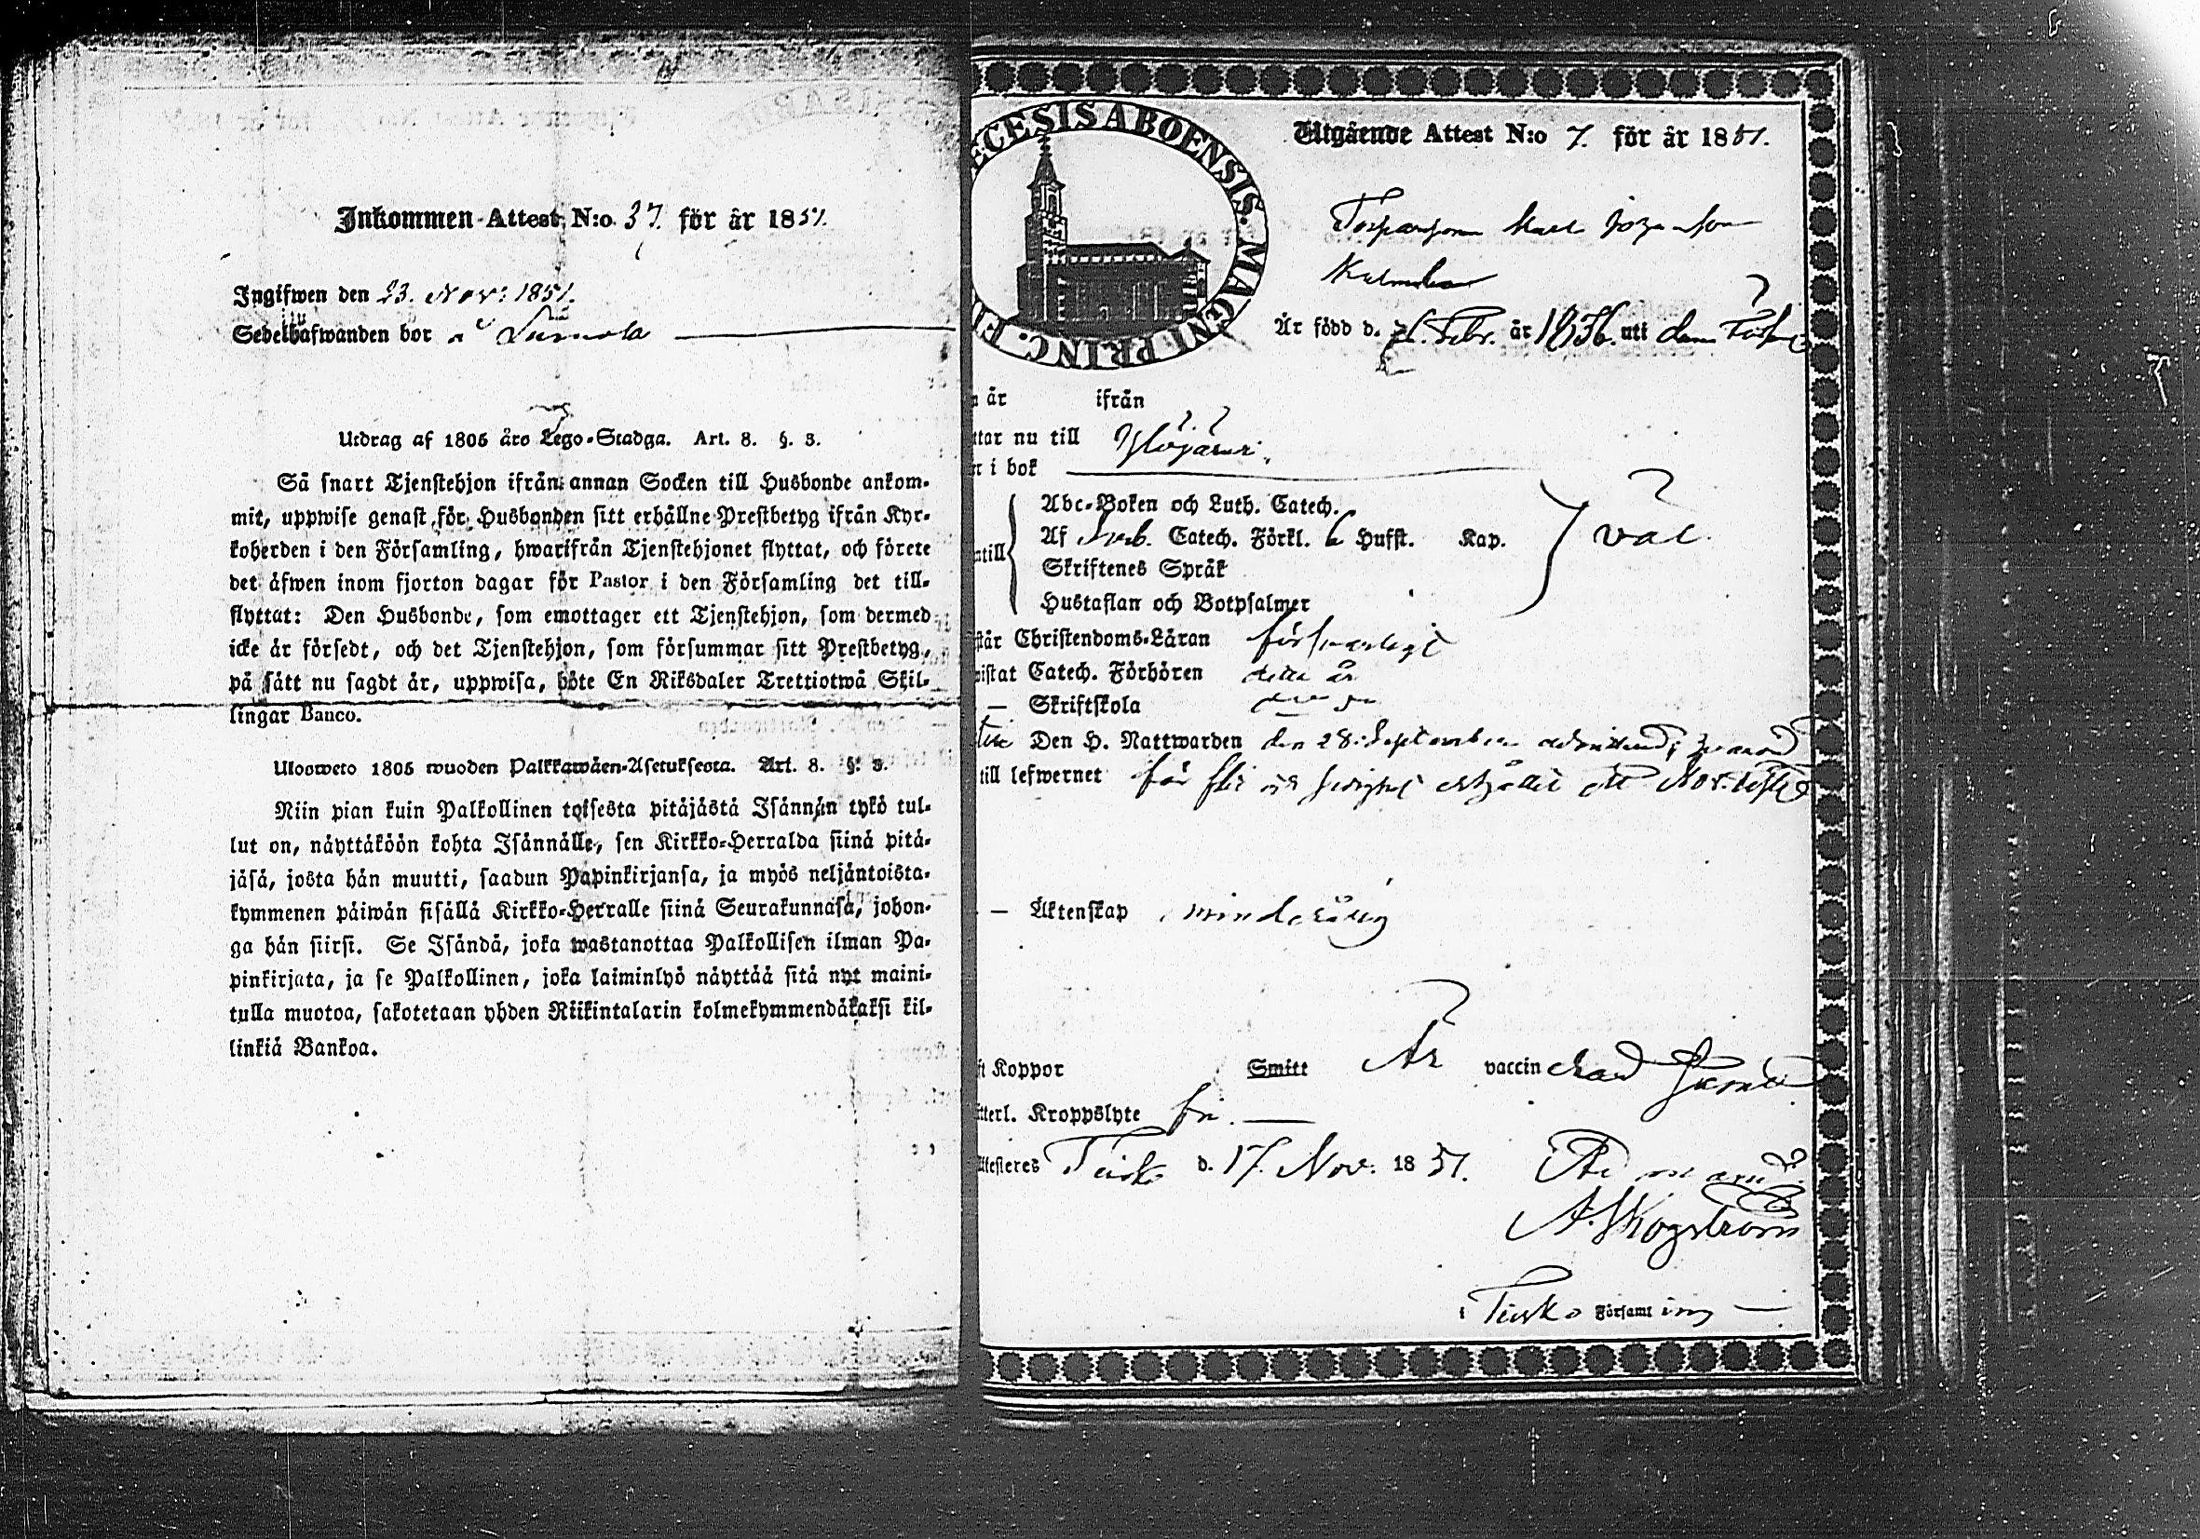 Inkommen Attest N:o 37. för år 1851.
Ingifwen den 23. Nov: 1851.
Sedelhafwanden bor
Utdrag af 1805 års Lego-Stadga. Art. 8. §. 3.
Så snart Tjenstehjon ifrån annan Socken till Husbonde ankom-
mit, uppwise genast för Husbonden sitt erhållne Prestbetyg ifrån Kyr-
koherden i den Församling, hwarifrån Tjenstehjonet flyttat, och förete
det äfwen inom fjorton dagar för Pastor i den Församling det till-
flyttat: Den Husbonde, som emottager ett Tjenstehjon, som dermed
icke är försedt, och det Tjenstehjon, som försummar sitt Prestbetyg,
på sätt nu sagdt är, uppwisa, böte En Riksdaler Trettiotwå Skil-
lingar Banco.
Uloosweto 1805 wuoden Palkkawäen-Asetuksesta. Art. 8. §. 3.
Niin pian kuin Palkollinen toisesta pitäjästä Isännän tykö tul-
lut on, näyttäköön kohta Isännälle, sen Kirkko-Herralda siinä pitä-
jäsä, josta hän muutti, saadun Papinkirjansa, ja myös neljäntoista-
kymmenen päiwän sisällä Kirkko-Herralle siinä Seurakunnasa, johon-
ga hän siirsi. Se Isändä, joka wastanottaa Palkollisen ilman Pa-
pinkirjata, ja se Palkollinen, joka laiminlyö näyttää sitä nyt maini-
tulla muotoa, sakotetaan yhden Riikintalarin kolmekymmendäkaksi kil-
linkiä Bankoa.
ECESIS ABOENSIS. MAGNI PRINC. F
Utgående Attest N:o 7. för år 1851.
Är född d. Febr. år 1836. uti
år ifrån
tar nu till Ylöjärvi.
r i bok
Abc-Boken och Luth. Catech.
Af Sveb. Catech. Förkl. 6 Hufst. Kap. väl.
till
Skriftenes Språk
Hustaflan och Botpsalmer
står Christendoms-Läran försvarligt
wistat Catech. Förhören detta år
— Skriftskola
Den H. Nattwarden den 28. September admitterad,
till lefwernet
— Äktenskap minderårig
Koppor Smitt Är vaccinerad
tterl. Kroppslyte fri. —
Attesteras Teisko d. 17. Nov. 1851.
A. Skogström
i Teisko Församling —